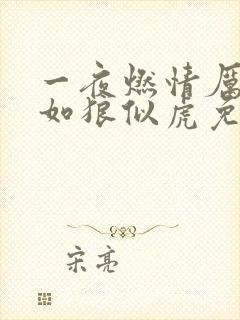 一夜燃情厲
如狼似虎免
宋亮